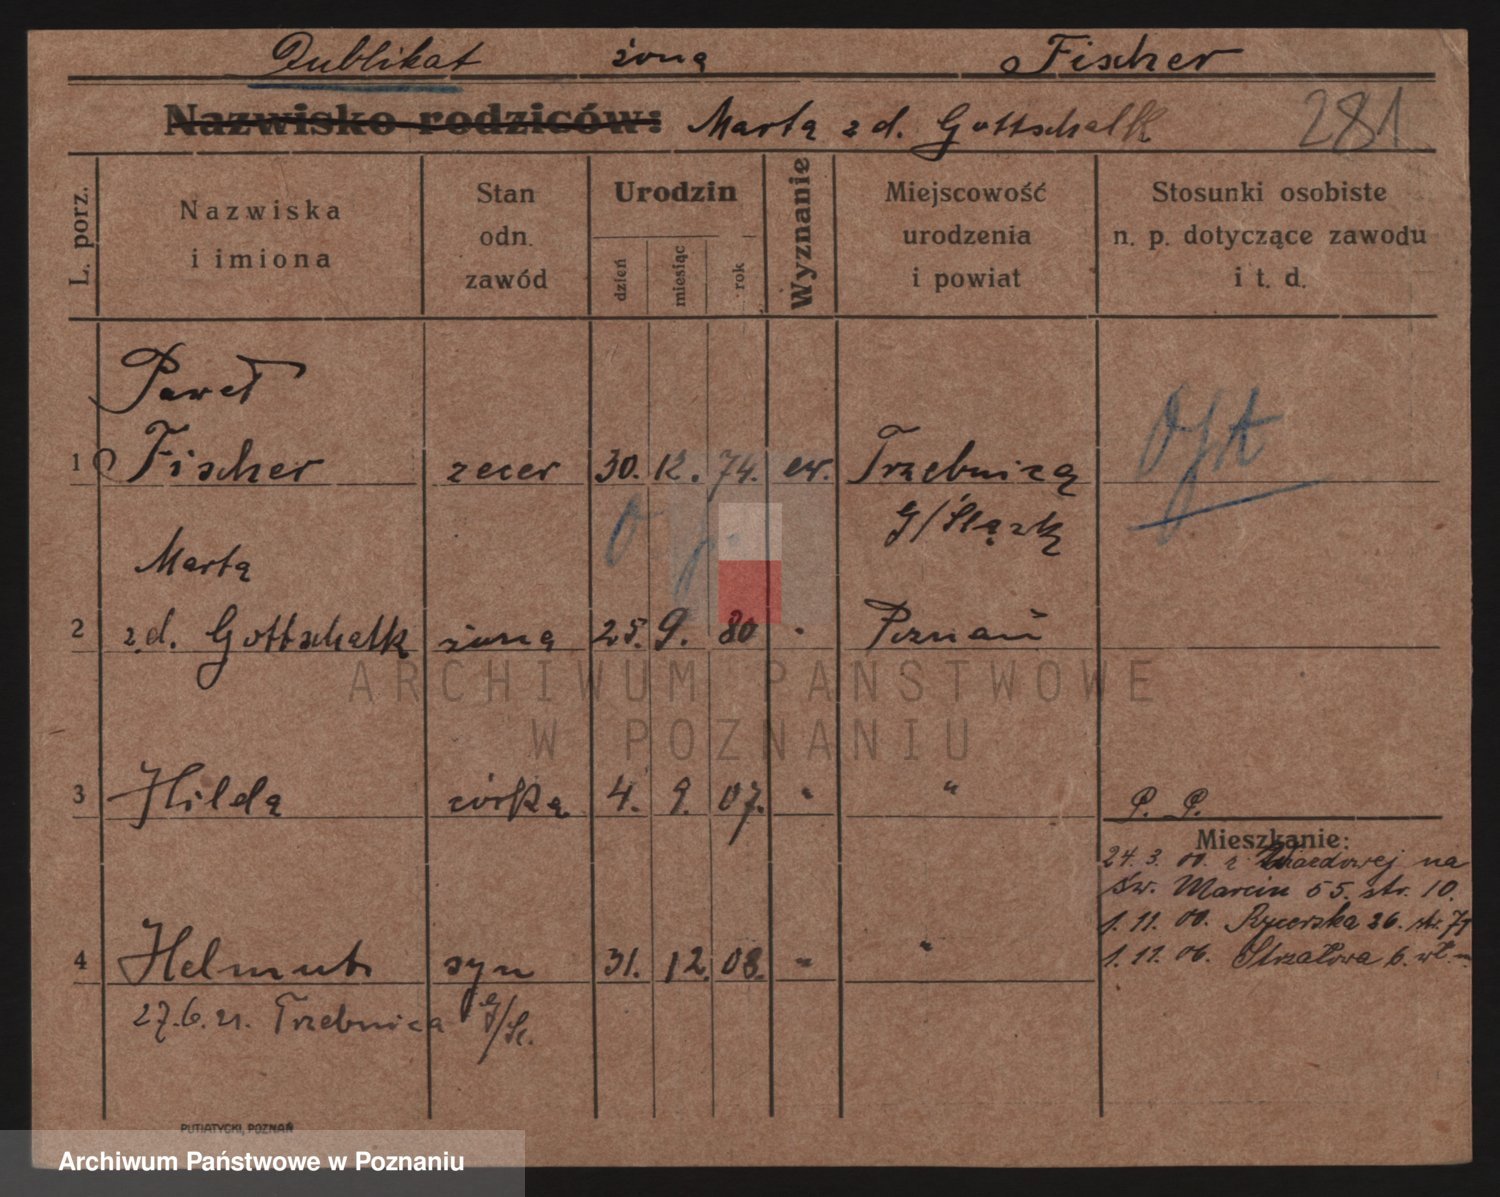 Dublikat żona Fischer
Nazwisko rodziców: Marta z d. Gottschalk 281
L. porz.
Nazwiska
i imiona
Stan
odn.
zawód
Urodzin
dzień
miesiąc
rok
Wyznanie
Miejscowość
urodzenia
i powiat
Stosunki osobiste
n. p. dotyczące zawodu
i t. d.
Paweł
1 Fischer zecer 30. 12. 74. ew. Trzebnica
G/Śląsk
Marta
2 z.d. Gottschalk żona 25. 9. 80 " Poznań
ARCHIWUM PAŃSTWOWE
W POZNANIU
3 Hilda córka 4. 9. 07. " "
P. P.
Mieszkanie:
24. 3. 00. z na
Św. Marcin 55. str. 10.
1. 11. 00. Rycerska 26. str.
1. 11. 06. Strzałowa 6. wł.
4 Helmut syn 31. 12. 08. " "
27.6.21. Trzebnica G/Śl.
PUTIATYCKI, POZNAŃ
Archiwum Państwowe w Poznaniu